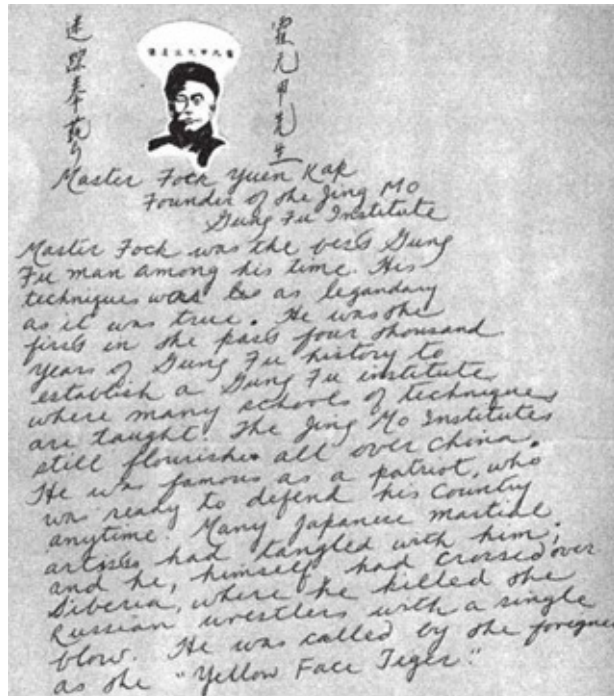 霍元甲先生
迷踪
Master Fock Yuen Kap
Founder of the Jing Mo
Gung Fu Institute
Master Fock was the best Gung
Fu man among his time. His
techniques was as legandary
as it was true. He was the
first in the past four thousand
years of Gung Fu history to
establish a Gung Fu institute
where many schools of techniques
are taught. The Jing Mo Institutes
still flourishes all over China.
He was famous as a patriot, who
was ready to defend his country
anytime. Many Japanese martial
artists had tangled with him;
and he, himself had crossed over
Siberia, where he killed the
Russian wrestlers with a single
blow. He was called by the foreigner
as the "Yellow Face Tiger."